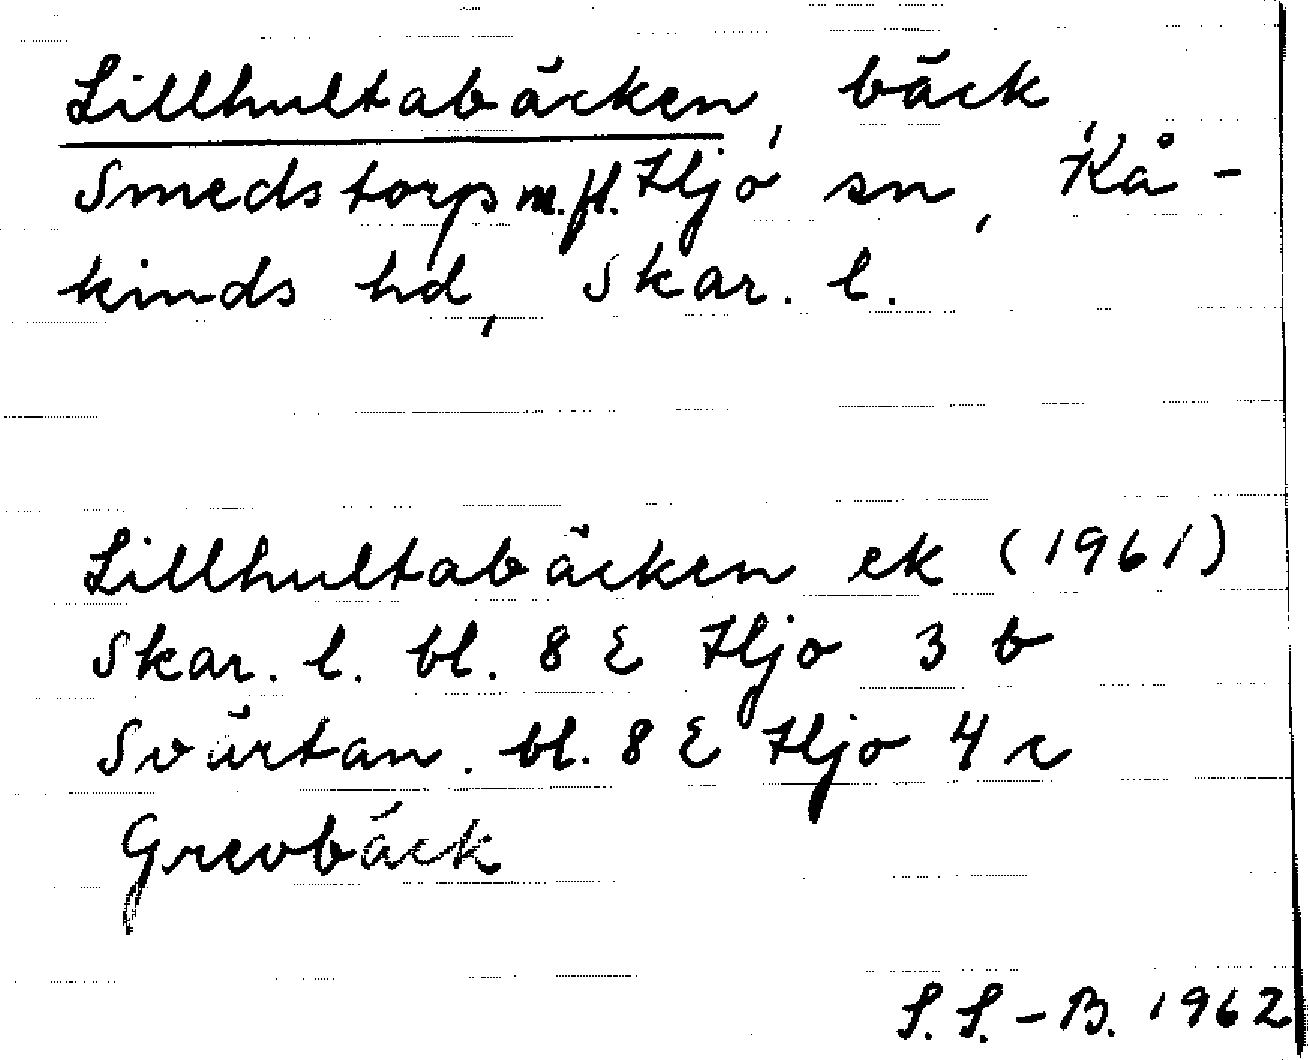 Lillhultabäcken, bäck,
Smedstorp m.fl. Hjo sn, Kå-
kinds hd, Skar. l.
Lillhultabäcken ek (1961)
Skar. l. bl. 8 E Hjo 3 b
Svärtan. bl. 8 E Hjo 4 c
Grevbäck
S. S.-B. 1962